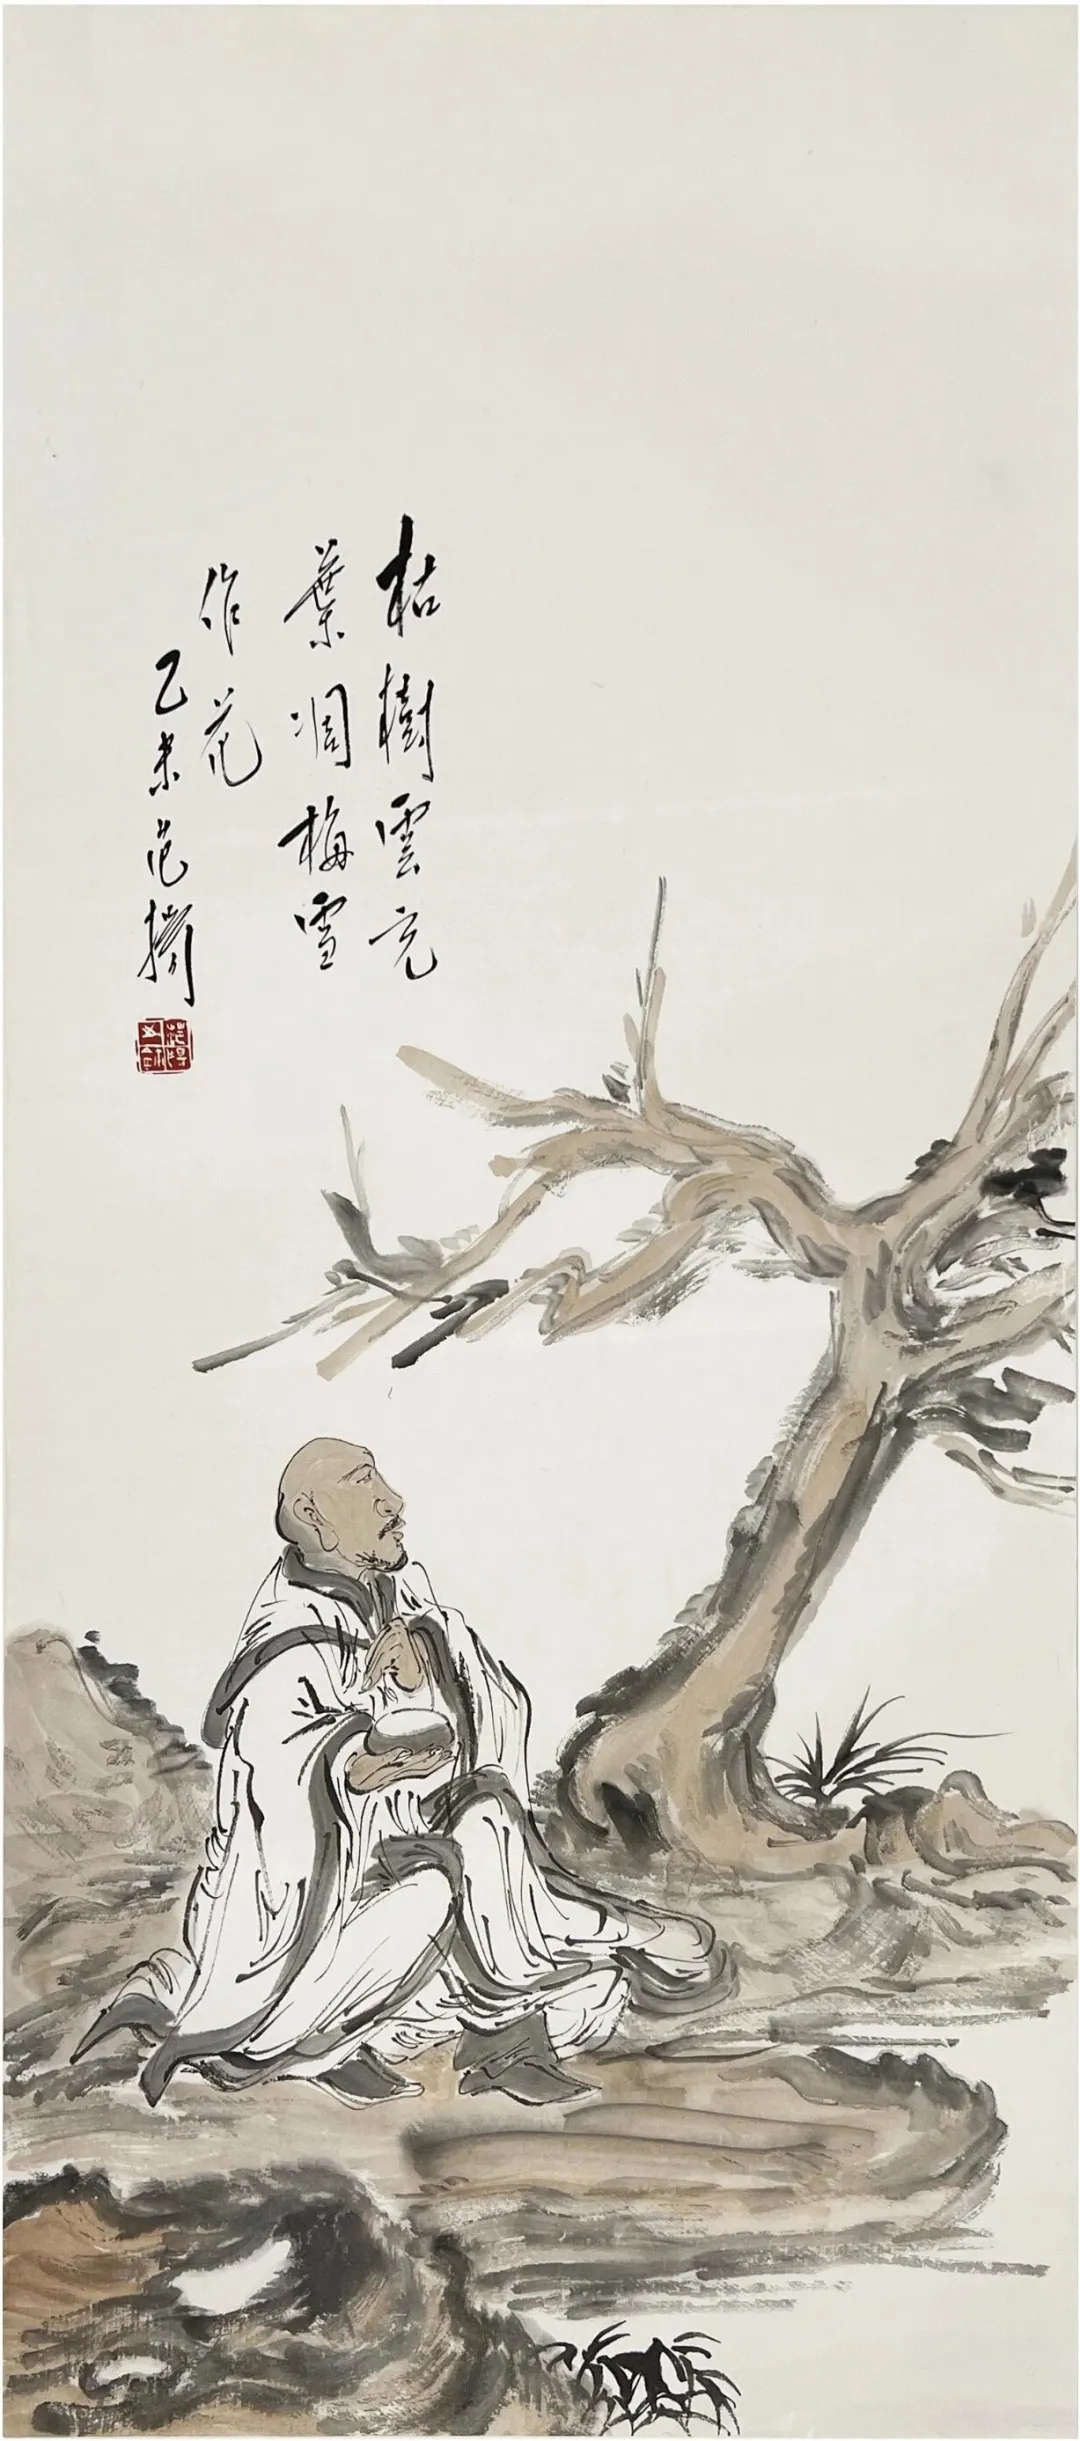 枯樹雲充
葉凋梅雪
作花
乙未范擕